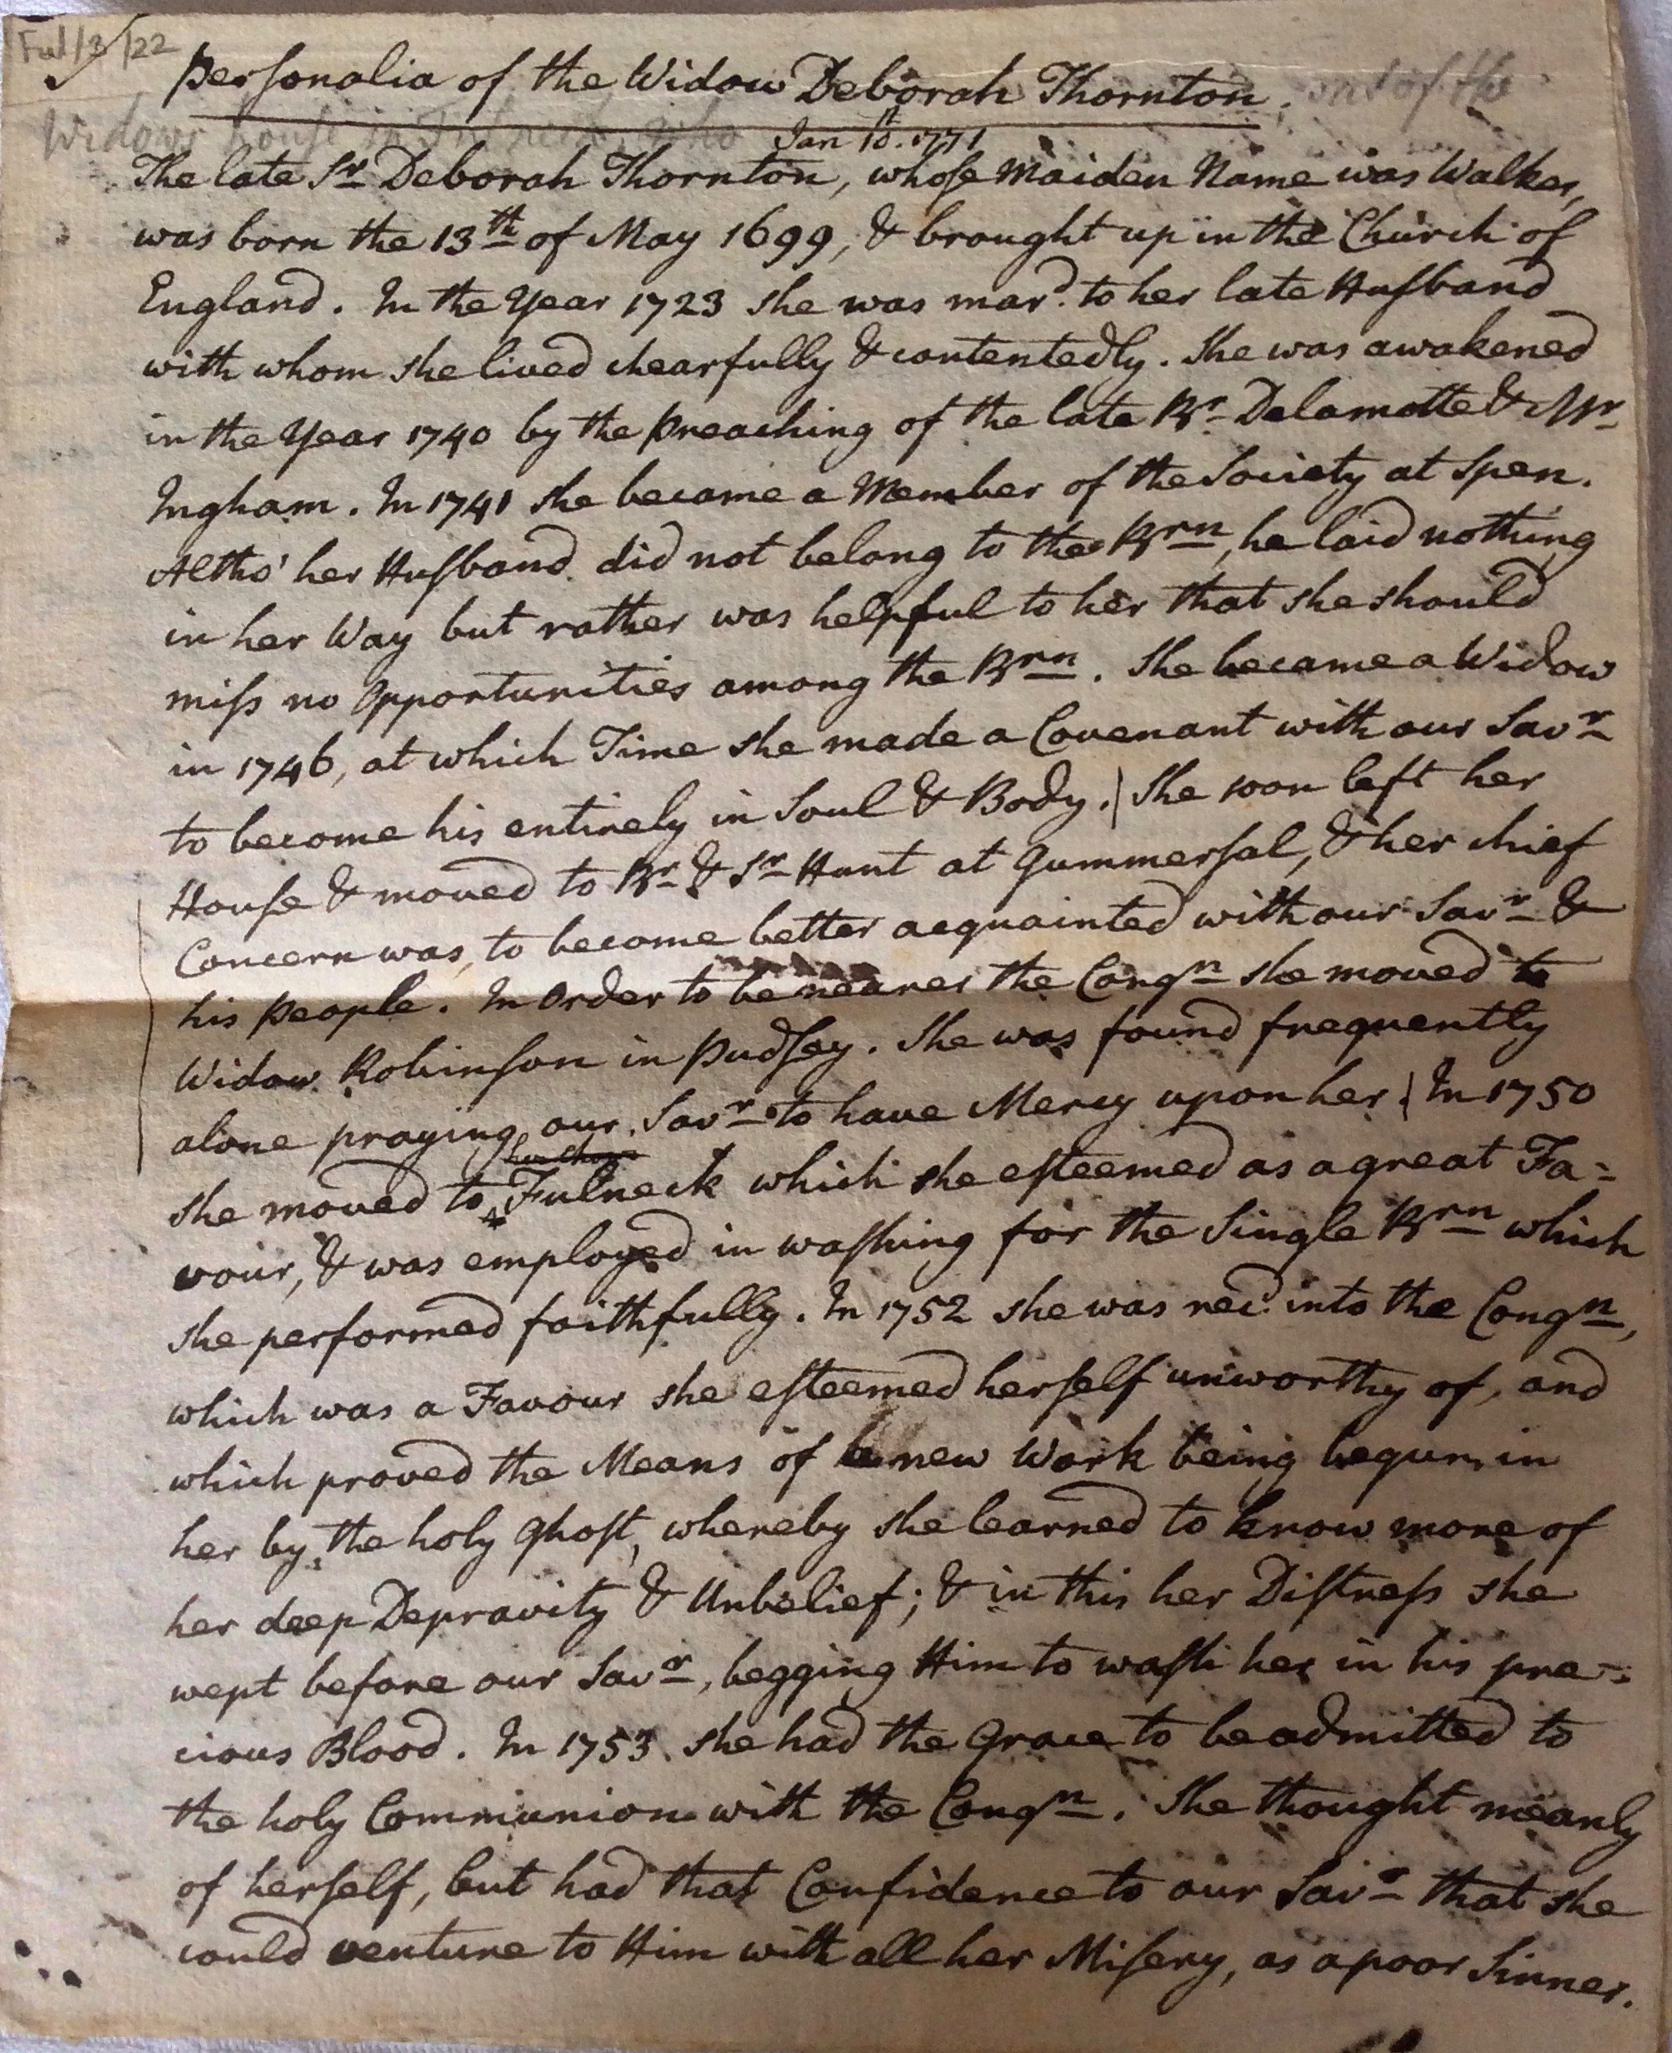 Ful/3/22
Personalia of the Widow Deborah Thornton. out of the
Widows house in Fulneck who Jan 10th. 1771
The late Sr Deborah Thornton, whose Maiden Name was Walker,
was born the 13th of May 1699, & brought up in the Church of
England. In the Year 1723 she was mard. to her late Husband
with whom she lived chearfully & contentedly. She was awakened
in the Year 1740 by the Preaching of the late Br Delamotte & Mr
Ingham. In 1741 she became a Member of the Society at Spen.
Altho' her Husband did not belong to the Brn, he laid nothing
in her Way but rather was helpful to her that she should
miss no Opportunities among the Brn. She became a Widow
in 1746, at which Time she made a Covenant with our Savr
to become his entirely in Soul & Body. | She soon left her
House & moved to Br & Sr Hunt at Gummersal, & her chief
Concern was, to become better acquainted with our Savr &
his People. In Order to be nearer the Congn she moved to
Widow Robinson in Pudsey. She was found frequently
alone praying our Savr to have Mercy upon her | In 1750
she moved to Fulneck which she esteemed as a great Fa=
vour, & was employed in washing for the Single Brn which
she performed faithfully. In 1752 she was recd. into the Congn,
which was a Favour she esteemed herself unworthy of, and
which proved the Means of a new Work being begun in
her by the holy Ghost, whereby she learned to know more of
her deep Depravity & Unbelief; & in this her Distress she
wept before our Savr, begging Him to wash her in his pre=
cious Blood. In 1753 she had the Grace to be admitted to
the holy Communion with the Congn. She thought meanly
of herself, but had that Confidence to our Savr that she
could venture to Him with all her Misery, as a poor Sinner.